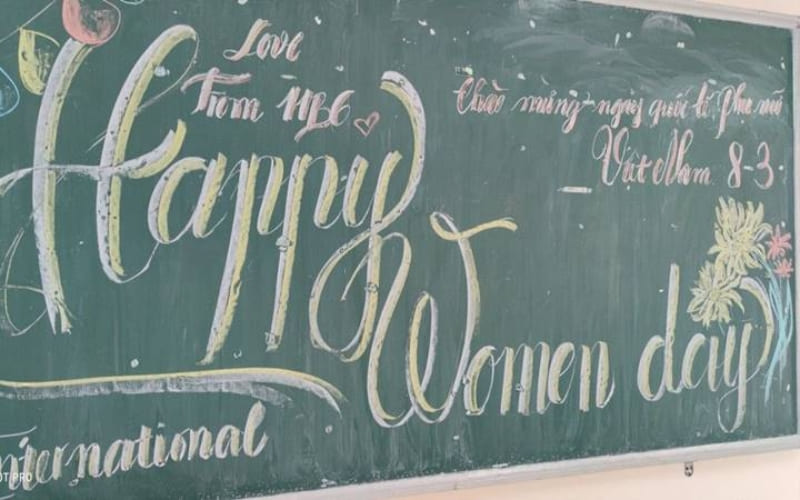 Love
From 11B6
Chào mừng ngày quốc tế Phụ nữ
Việt Nam 8-3
Happy
Women day
International
OT PRO